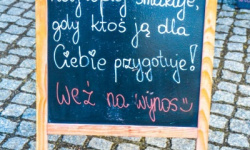 smakuje,
gdy ktoś ją dla
Ciebie przygotuje!
Weź na wynos